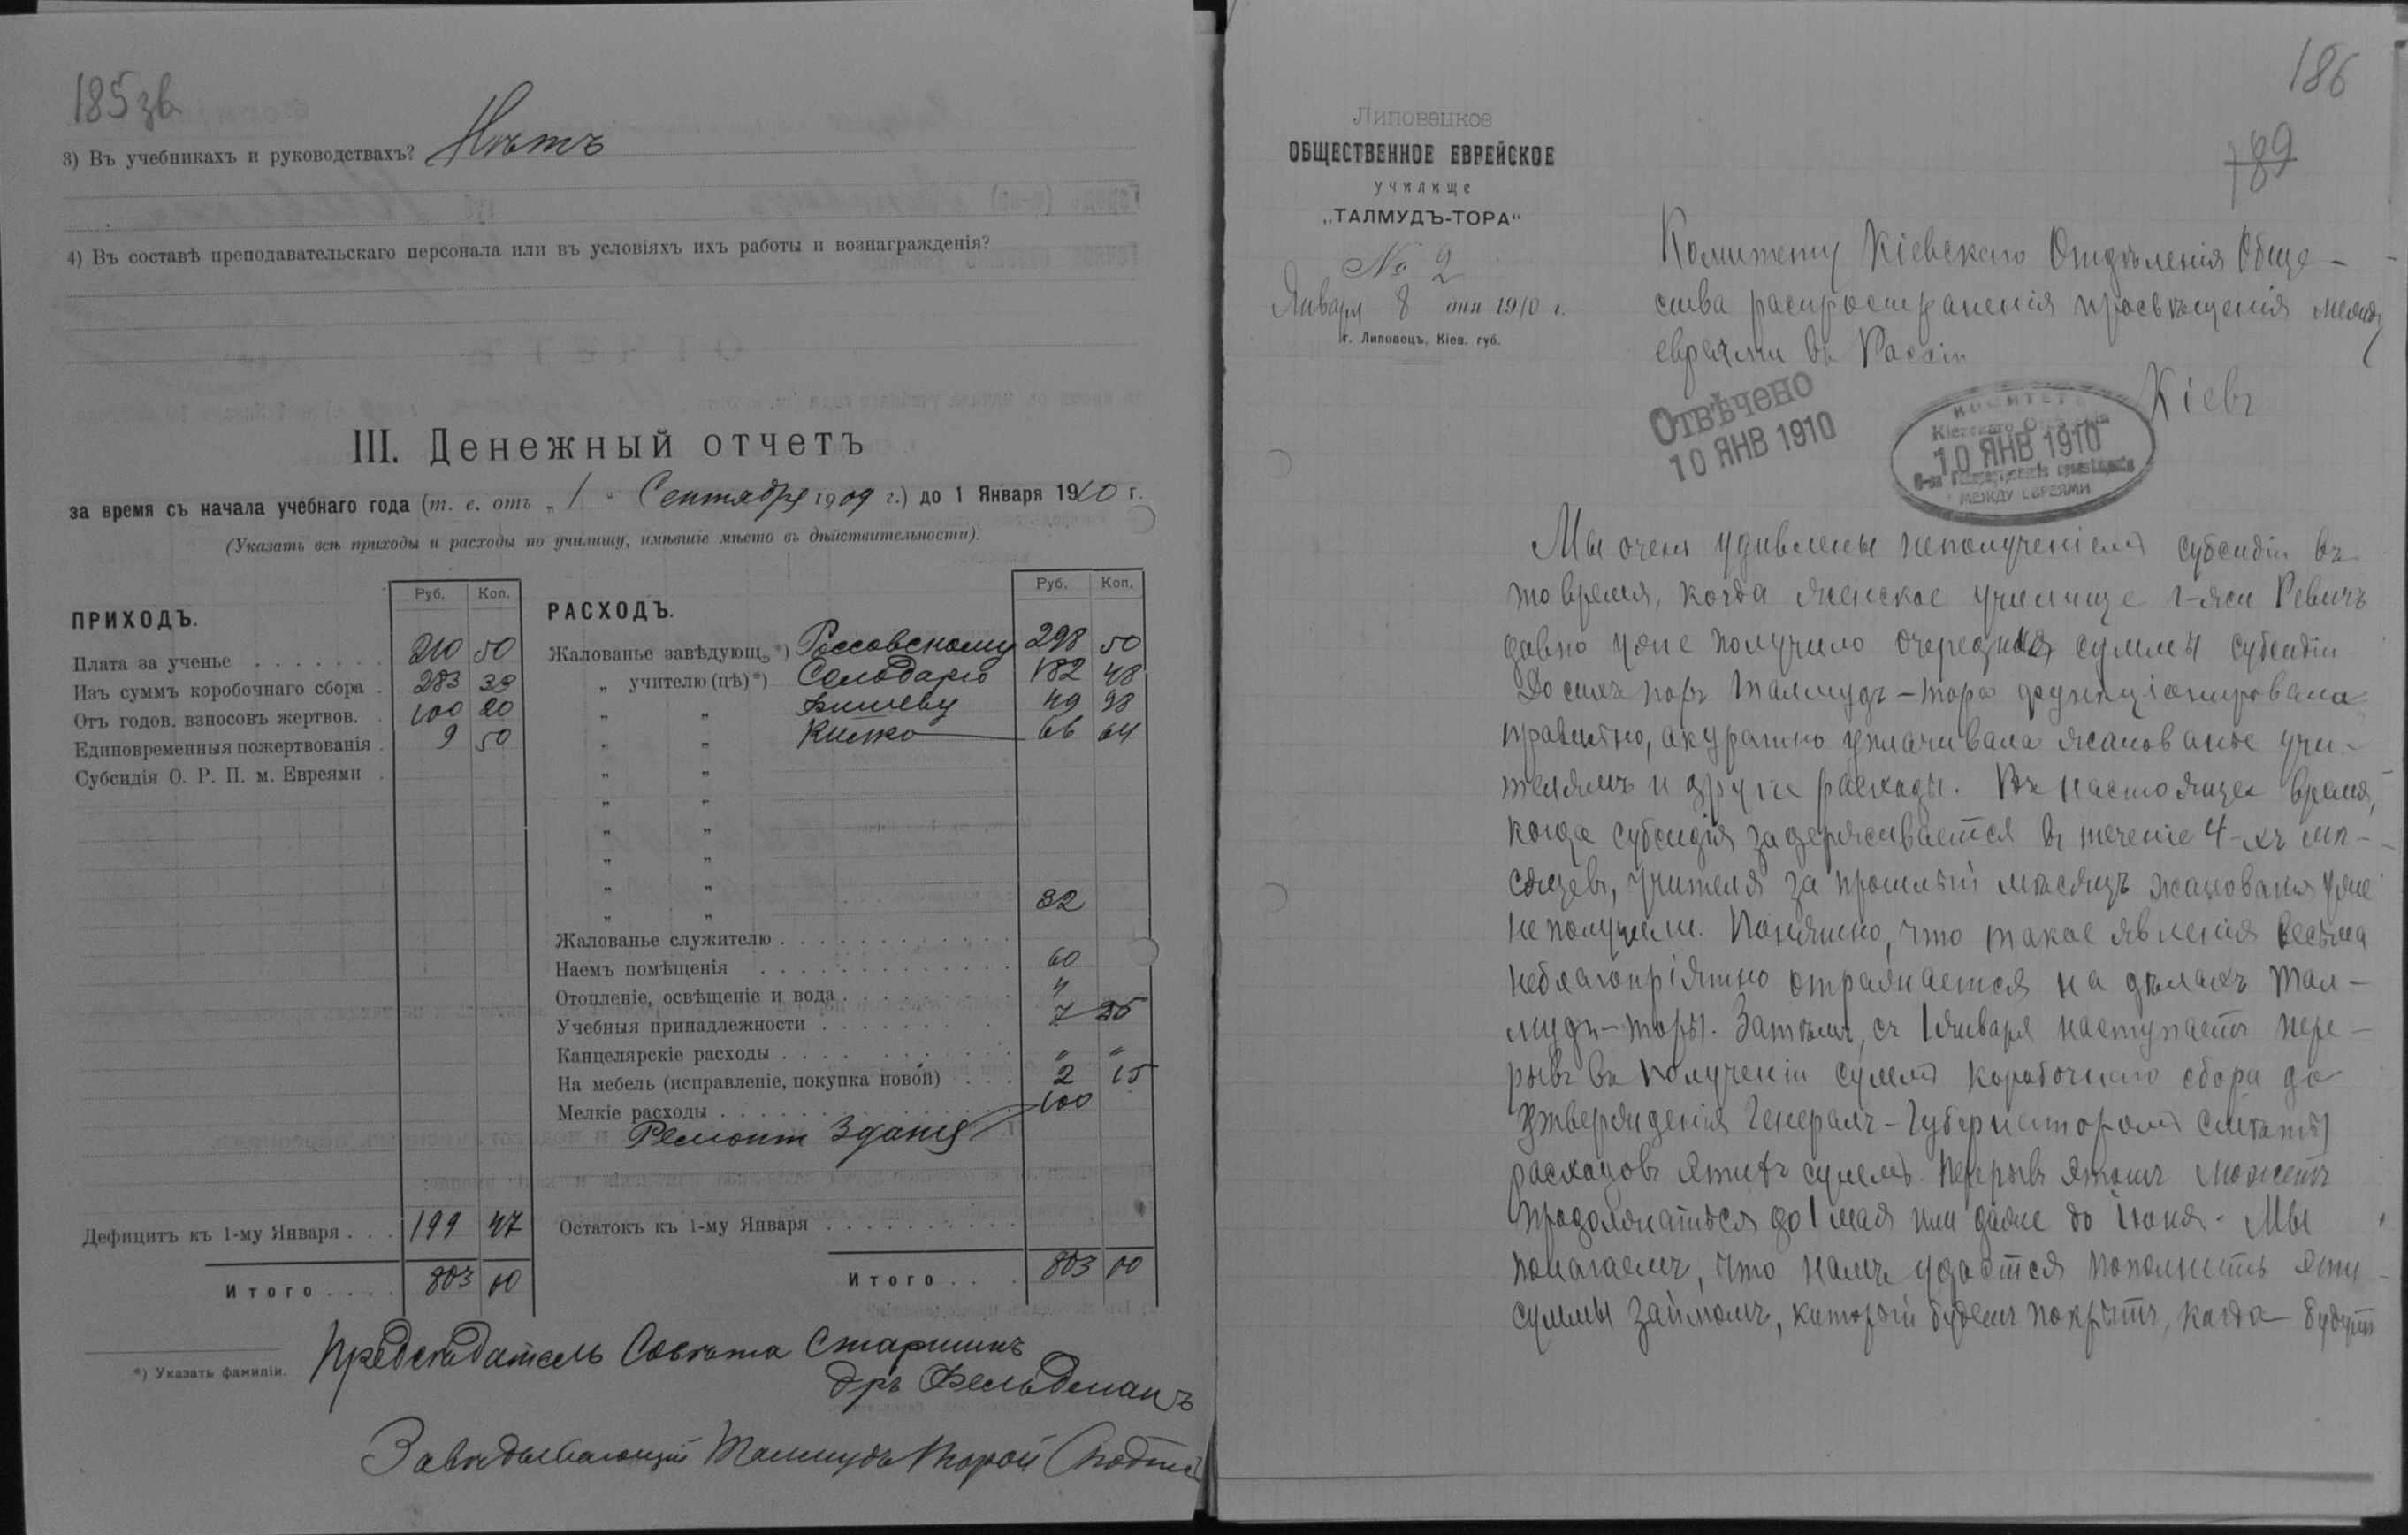 185 зв
3) Въ учебникахъ и руководствахъ? Нѣтъ
4) Въ составѣ преподавательскаго персонала или въ условіяхъ ихъ работы и вознагражденія?
III. Денежный отчетъ
за время съ начала учебнаго года (т. е. отъ „1“ Сентября 1909 г.) до 1 Января 1910 г.
(Указать всѣ приходы и расходы по училищу, имѣвшіе мѣсто въ дѣйствительности).
ПРИХОДЪ. Руб. Коп.
Плата за ученье 210 50
Изъ суммъ коробочнаго сбора 283 33
Отъ годов. взносовъ жертвов. 100 20
Единовременныя пожертвованія 9 50
Субсидія О. Р. П. м. Евреями
Дефицитъ къ 1-му Января 199 47
Итого 803 00
РАСХОДЪ. Руб. Коп.
Жалованье завѣдующ„ *) Россовскому 298 50
„ учителю (цѣ) *) 182 48
„ „ 49 98
„ „ 66 64
„ „
„ „
„ „
„ „
„ „
„ „
32
Жалованье служителю
Наемъ помѣщенія 60
Отопленіе, освѣщеніе и вода 4
Учебныя принадлежности 7 25
Канцелярскіе расходы „ „
На мебель (исправленіе, покупка новой) 2 15
Мелкіе расходы 100
Ремонт зданія
Остатокъ къ 1-му Января
Итого 803 00
*) Указать фамиліи.
Предсѣдатель Совѣта Старшинъ
Дръ Фельдманъ
Завѣдывающій Талмудъ Торой
186
189
Липовецкое
ОБЩЕСТВЕННОЕ ЕВРЕЙСКОЕ
училище
„ТАЛМУДЪ-ТОРА“
№ 2
Января 8 дня 1910 г.
г. Липовецъ, Кіев. губ.
Комитету Кіевскаго Отдѣленія Обще-
ства распространенія просвѣщенія между
евреями въ Россіи
Кіевъ
Отвѣчено
10 ЯНВ 1910
КОМИТЕТЪ
Кіевскаго Отдѣленія
10 ЯНВ 1910
О-ва Распространенія просвѣщенія
МЕЖДУ ЕВРЕЯМИ
Мы очень удивлены неполученіемъ субсидіи въ
то время, когда женское училище г-жи Ревичъ
давно уже получило очередныя суммы субсидіи
До сихъ поръ Талмудъ-тора функціонировала
правильно, акуратно уплачивала жалованье учи-
телямъ и другіе расходы. Въ настоящее время,
когда субсидія задерживается въ теченіе 4-хъ мѣ-
сяцевъ, учителя за прошлый мѣсяцъ жалованія уже
не получили. Понятно, что такое явленія весьма
неблагопріятно отражается на дѣлахъ Тал-
мудъ-торы. Затѣмъ, съ 1 января наступаетъ пере-
рывъ въ полученіи суммъ коробочнаго сбора до
утвержденія Генералъ-Губернаторомъ смѣты
расходовъ этихъ суммъ. Перерывъ этотъ можетъ
продолжаться до 1 мая или даже до іюня. Мы
полагаемъ, что намъ удастся пополнить эти
суммы займомъ, который будетъ покрытъ, когда будутъ